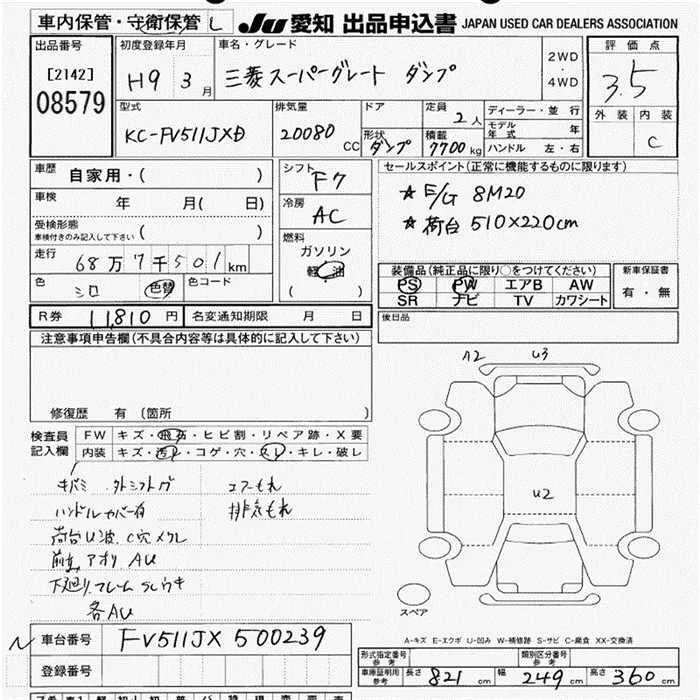 車内保管・守衛保管 L
JU 愛知 出品申込書 JAPAN USED CAR DEALERS ASSOCIATION
出品番号
[2142]
08579
初度登録年月
H9 3月
車名・グレード
三菱スーパーグレート ダンプ
2WD
・
4WD
評価点
3.5
外装 内装
C
型式
KC-FV511JXD
排気量
20080 CC
ドア
形状 ダンプ
定員 2人
積載 7700 kg
ディーラー・並行
モデル年式 年
ハンドル 左・右
車歴 自家用・( )
車検 年 月( 日)
受検形態
車検付きのみ記入して下さい ( )
走行 68万7千501km
色 シロ 色替 色コード
シフト F7
冷房 AC
燃料
ガソリン
軽油
( )
セールスポイント(正常に機能するものに限ります)
★ E/G 8M20
★ 荷台 510×220cm
装備品(純正品に限り○をつけてください)
PS PW エアB AW
SR ナビ TV カワシート
新車保証書
有・無
R券 11,810円 名変通知期限 月 日
後日品
注意事項申告欄(不具合内容等は具体的に記入して下さい)
修復歴 有(箇所 )
検査員記入欄
FW キズ・飛石・ヒビ割・リペア跡・X要
内装 キズ・汚レ・コゲ・穴・スレ・キレ・破レ
キバミ 外シフトグ エアーもれ
ハンドルカバー有 排気もれ
荷台U波、C穴メクレ
アオリ AU
下廻り、フレーム SCウキ
各AU
A2 U3
U2
スペア
A-キズ E-エクボ U-凹み W-補修跡 S-サビ C-腐食 XX-交換済
車台番号 FV511JX 500239
登録番号
形式指定番号 参考
類別区分番号 参考
車庫証明用参考 長さ 821 cm 幅 249 cm 高さ 360 cm